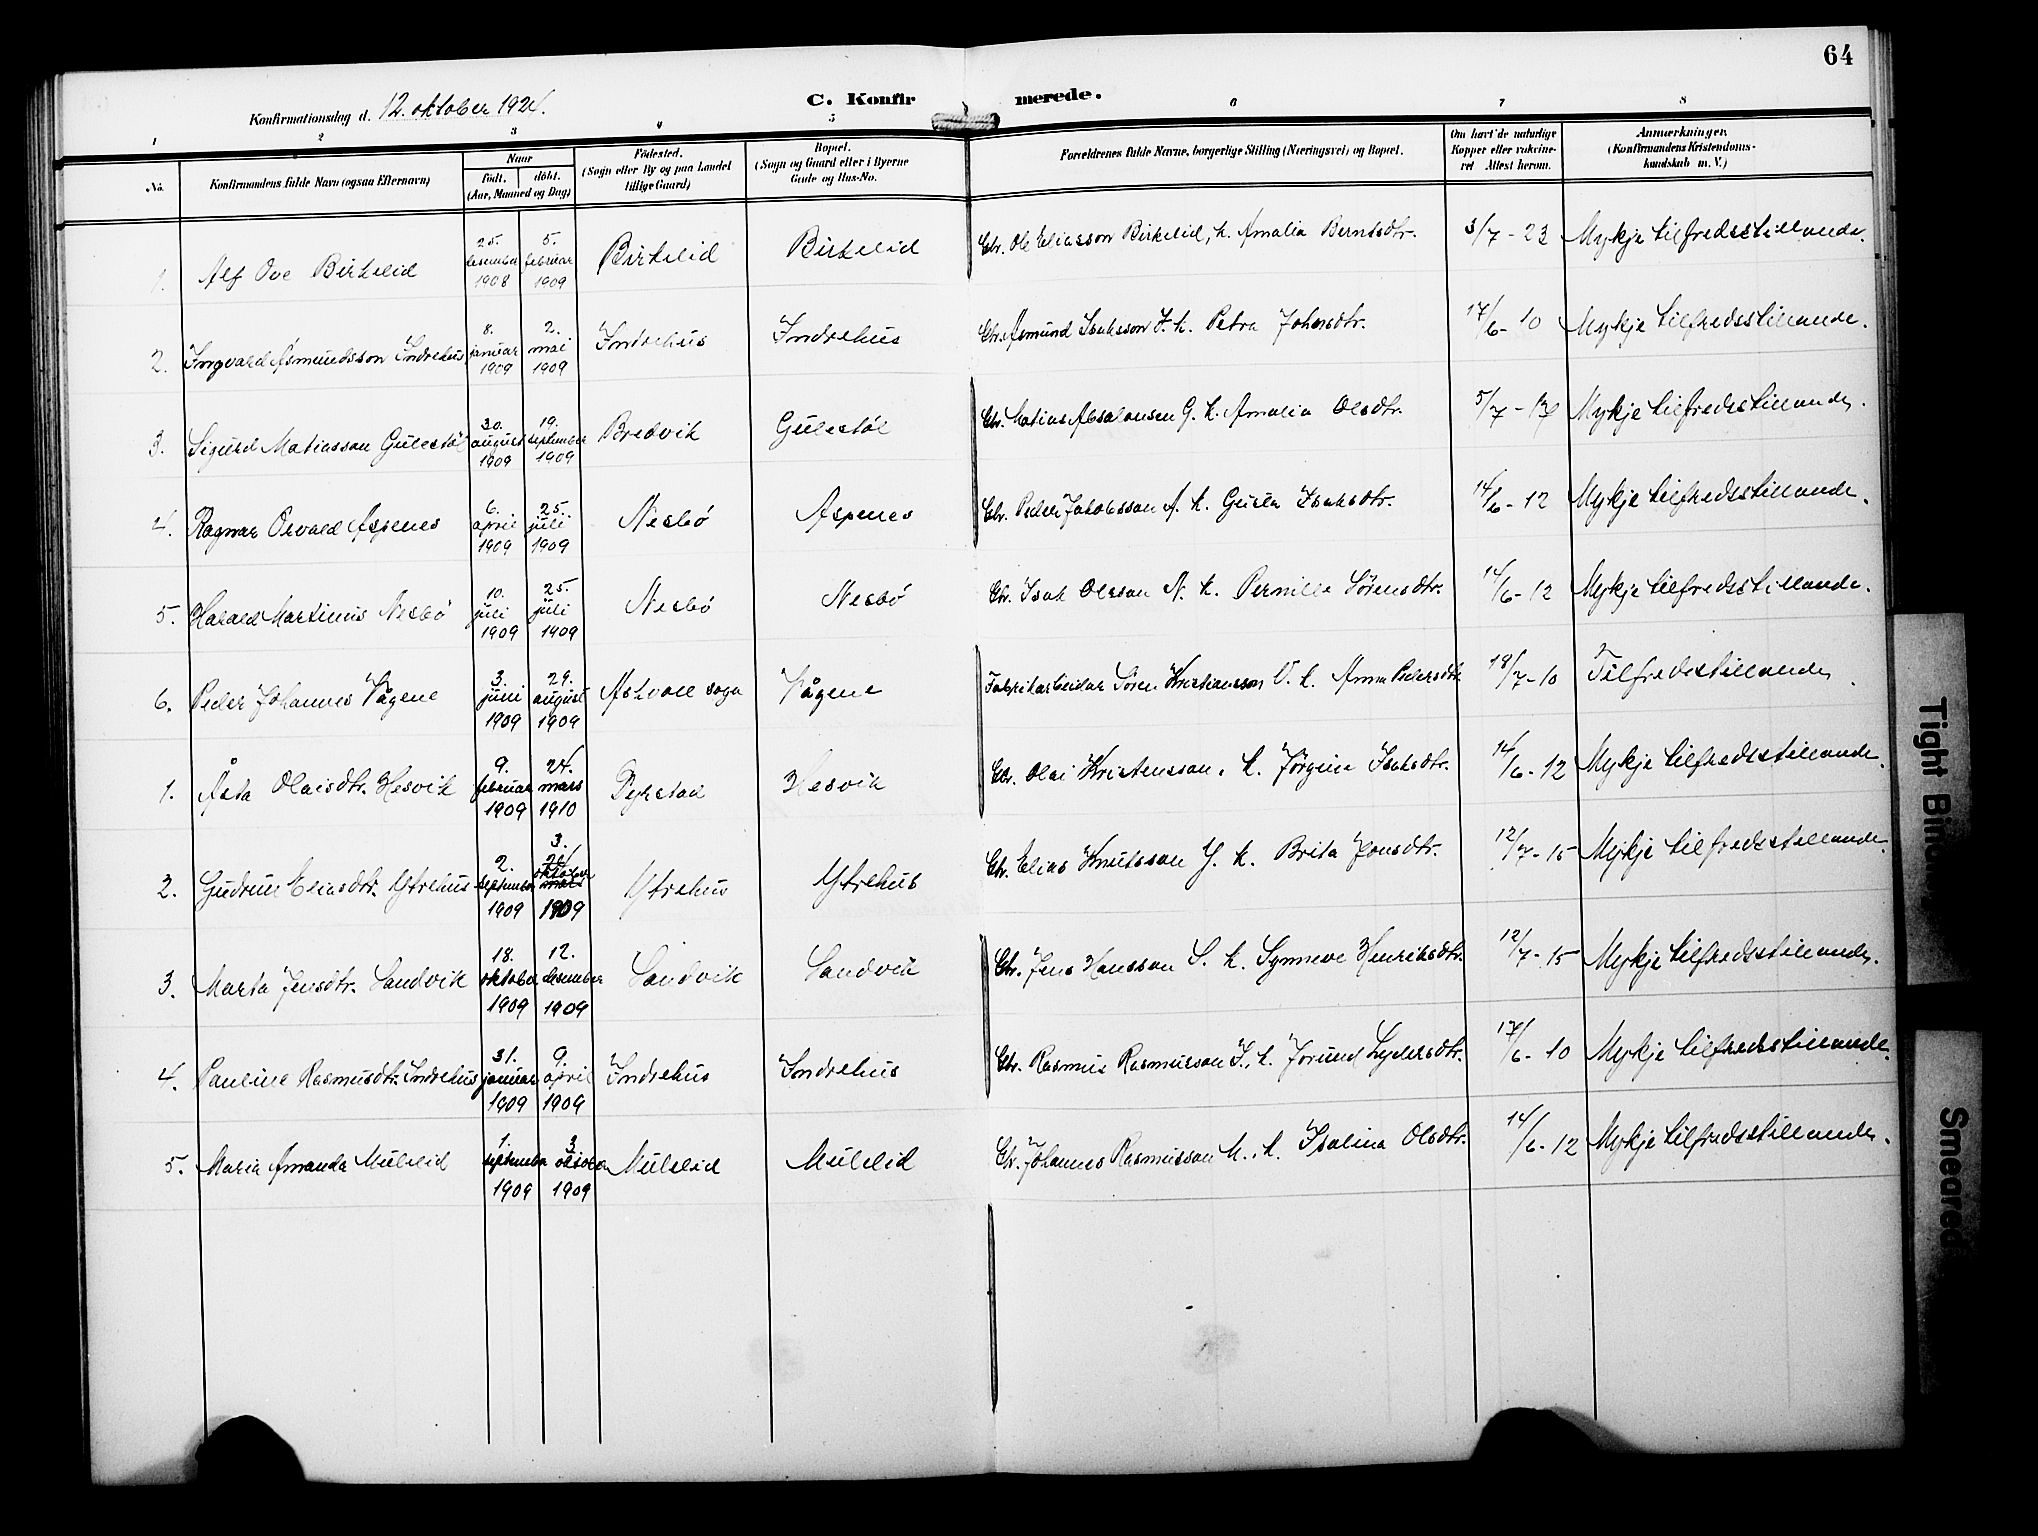 64
C. Konfirmerede.
Konfirmationsdag d. 12. oktober 1924.
1 2 3 4 5 6 7 8
No. Konfirmandens fulde Navn (ogsaa Efternavn) Naar født. døbt. (Aar, Maaned og Dag) Fødested. (Sogn eller By og paa Landet tillige Gaard) Bopæl. (Sogn og Gaard eller i Byerne Gade og Hus-No. Forældrenes fulde Navne, borgerlige Stilling (Næringsvei) og Bopæl. Om havt de naturlige Kopper eller vakcineret Attest herom. Anmærkninger. (Konfirmandens Kristendomskundskab m. V.)
1. Alf Ove Birkelid 25. desember 1908 5. februar 1909 Birkelid Birkelid Gbr. Ole Eliasson Birkelid, k. Amalia Berntsdtr. 3/7 - 23 Mykje tilfredsstillande.
2. Ingvard Åsmundsson Indrehus 8. januar 1909 2. mai 1909 Indrehus Indrehus Gbr. Åsmund Isaksson I. k. Petra Johnsdtr. 17/6 - 10 Mykje tilfredsstillande.
3. Sigurd Matiasson Gulestøl 30. august 1909 19. september 1909 Bredvik Gulestøl Gbr. Matias Absalonsen G. k. Amalia Olsdtr. 5/7 - Mykje tilfredsstillande.
4. Ragnar Osvald Aspenes 6. april 1909 25. juli 1909 Nesbø Aspenes Gbr. Peder Jakobsson A. k. Gusta Isaksdtr. 14/6 - 12 Mykje tilfredsstillande.
5. Harald Martinus Nesbø 10. juli 1909 25. juli 1909 Nesbø Nesbø Gbr. Isak Olsson N. k. Pernille Sørensdtr. 14/6 - 12 Mykje tilfredsstillande.
6. Peder Johannes Vågene 3. juni 1909 29. august 1909 Askvoll sogn Vågene Fabrikarbeidar Søren Kristiansson V. k. Anna Pedersdtr. 18/7 - 10 Tilfredsstillande.
1. Åsta Olaisdtr. Hesvik 9. februar 1909 24. mars 1910 Dyrstad Hesvik Gbr. Olai Kristensson. k. Jørgine Isaksdtr. 14/6 - 12 Mykje tilfredsstillande.
2. Gudrun Eliasdtr. Ytrehus 2. september 1909 3. oktober 1909 Ytrehus Ytrehus Gbr. Elias Knutsson Y. k. Brita Jonsdtr. 12/7 - 15 Mykje tilfredsstillande.
3. Marta Jensdtr. Sandvik 18. oktober 1909 12. desember 1909 Sandvik Sandvik Gbr. Jens Hansson S. k. Synneve Henriksdtr. 12/7 - 15 Mykje tilfredsstillande.
4. Pauline Rasmusdtr. Indrehus 31. januar 1909 9. april 1909 Indrehus Indrehus Gbr. Rasmus Rasmusson I., k. Jorund Lydersdtr. 17/6 - 10 Mykje tilfredsstillande.
5. Maria Amanda Mulelid 1. september 1909 3. oktober 1909 Mulelid Mulelid Gbr. Johannes Rasmusson M. k. Isalina Olsdtr. 14/6 - 12 Mykje tilfredsstillande.
Tight
Smeared